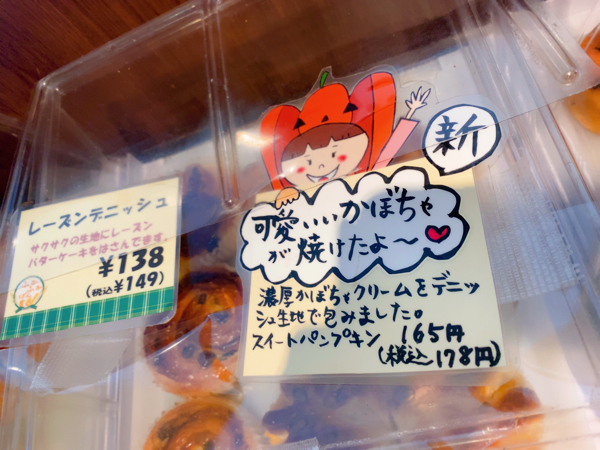 レーズンデニッシュ
サクサクの生地にレーズン
バターケーキをはさんでます。
¥138
(税込¥149)
新
可愛いいかぼちゃ
が焼けたよ〜
濃厚かぼちゃクリームをデニッ
シュ生地で包みました。
スイートパンプキン 165円
(税込178円)